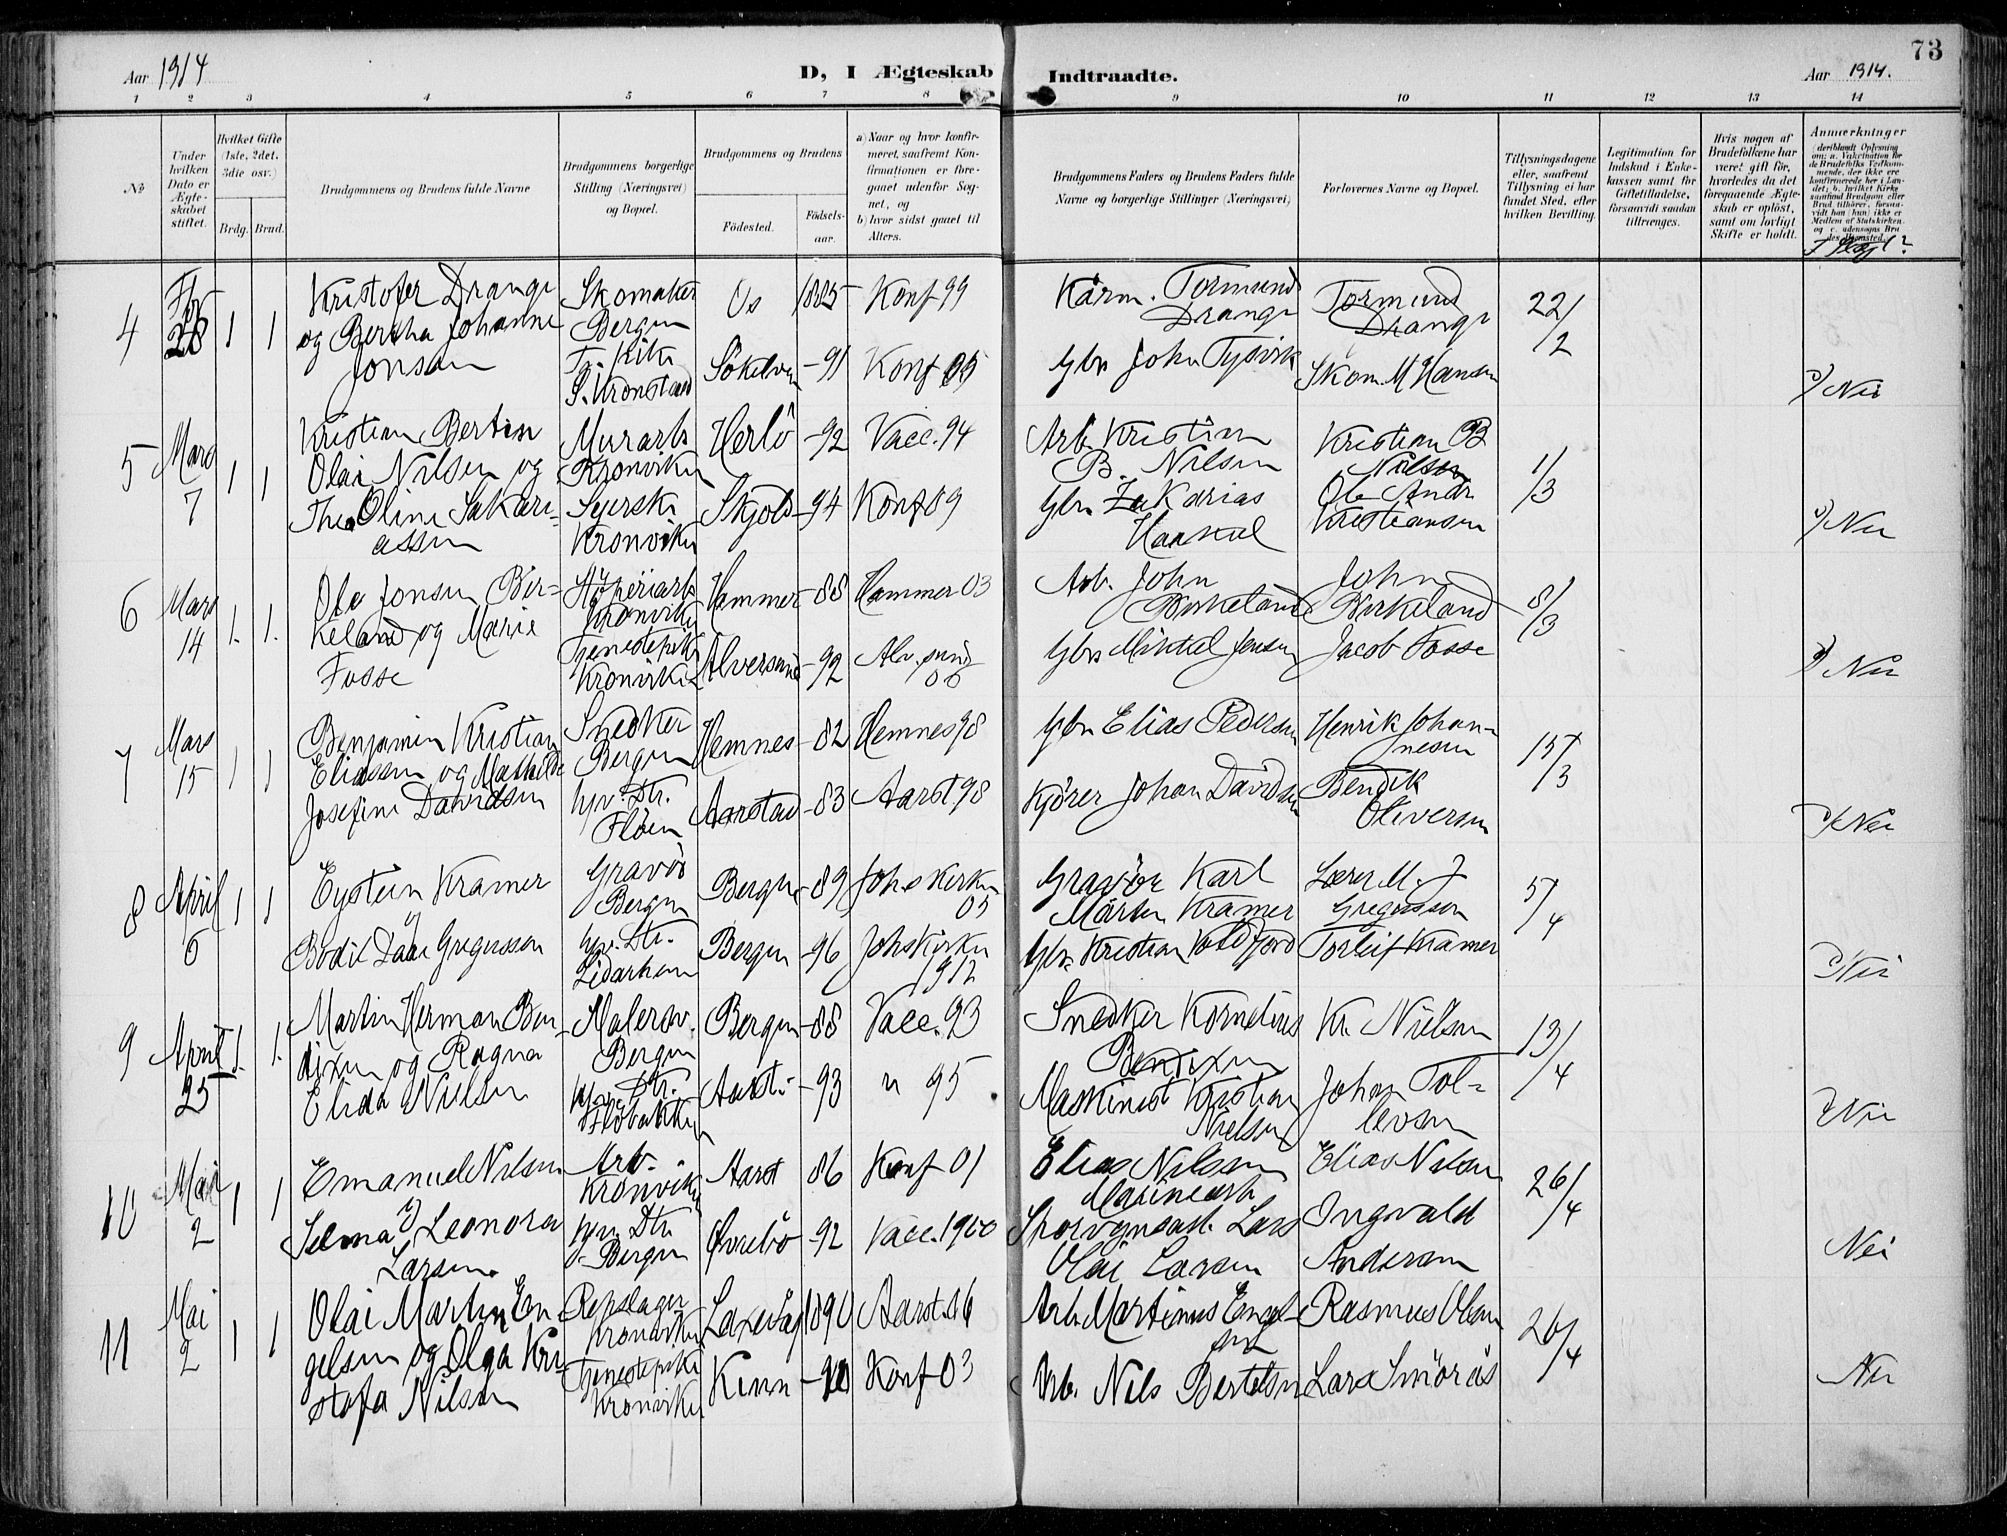 73
Aar 1914
D, I Ægteskab Indtraadte.
Aar 1914.
1 2 3 4 5 6 7 8 9 10 11 12 13 14
No
Under hvilken Dato er Ægteskabet stiftet.
Hvilket Gifte (1ste, 2det, 3die osv.)
Brdg. Brud.
Brudgommens og Brudens fulde Navne
Brudgommens borgerlige Stilling (Næringsvei) og Bopæl.
Brudgommens og Brudens
Födested.
Födselsaar.
a) Naar og hvor konfirmeret, saafremt Konfirmationen er foregaaet udenfor Sognet, og
b) hvor sidst gaaet til Alters.
Brudgommens Faders og Brudens Faders fulde Navne og borgerlige Stillinger (Næringsvei)
Forlovernes Navne og Bopæl.
Tillysningsdagene eller, saafremt Tillysning ei har fundet Sted, efter hvilken Bevilling.
Legitimation for Indskud i Enkekassen samt for Giftetilladelse, forsaavidt saadan tiltrænges.
Hvis nogen af Brudefolkene har været gift før, hvorledes da det foregaaende Ægteskab er oplöst, samt om lovligt Skifte er holdt.
Anmærkninger
4 Fbr 28 1 1
Kristofer Drange
og Bertha Johanne
Jonsen
Skomaker
Bergen
Tj. Pike
Kronstad
Os 1885 Konf 99
-91 Konf 05
Tormund
Drange
Gbr John Tysvik
Tormund
Drange
Skom. M Hansen
22/2
Nei
5 Mars 7 1 1
Kristian Bertin
Olai Nilsen og
Thea Oline Sakari-
assen
Murarb
Kronviken
Syerske
Kronviken
Herlö -92 Vacc. 94
Skjold -94 Konf 09
Arb. Kristian
B. Nilsen
Gbr. Zakarias
Kristian B
Nilsen
Ole Andr
Kristiansen
1/3
Nei
6 Mars 14 1. 1.
Ole Jonsen Bir-
keland og Marie
Fosse
Kronviken
Tjenestepike
Kronviken
Hammer -88 Hammer 03
Alversund -92 Alv. sund
06
Arb. John
Birkeland
Gbr Mikal Jensen
John
Birkeland
Jacob Fosse
8/3
Nei
7 Mars 15 1 1
Benjamin Kristian
Eliassen og Mathilde
Josefine Davidsen
Snedker
Bergen
hjv. Dtr.
Flöen
Hemnes -82 Hemnes 98
Aarstad -83 Aarst 98
Gbr Elias Pedersen
Kjörer Johan Davidsen
Henrik Johan-
nesen
Bendik
Oliversen
15/3
Nei
8 April 5 1 1
Eystein Kramer
og
Bodil Daae Gregusson
Gravör
Bergen
hjv. Dtr.
Bergen -89 Johskirken
05
Bergen -96 Johskirken
1912
Gravör Karl
Mårten Kramer
Gbr. Kristian
Lærer M. J
Gregusson
Torleif Kramer
5/4
Nei
9 April 25 1. 1.
Martin Herman Ben-
dixen og Ragna
Elida Nielsen
Malersv.
Bergen
hjv. Dtr.
Bergen -88 Vacc. 93
Aarst. -93 " 95
Snedker Kornelius
Bendixen
Maskinist Kristian
Nielsen
Kr. Nielsen
Johan Tol-
levsen
13/4
Nei
10 Mai 2 1 1
Emanuel Nilsen
og
Selma Leonora
Larsen
Arb.
Kronviken
hjv. Dtr
Bergen
Aarst 86 Konf 01
Övrebö -92 Vacc. 1900
Elias Nilsen
Marinearb
Sporvognsarb. Lars
Olai Larsen
Elias Nilsen
Ingvald
Andersen
26/4
Nei
11 Mai 2 1 1
Olai Martin En-
gelsen og Olga Kri-
stofa Nilsen
Repslager
Kronviken
Tjenestepike
Kronviken
Laxevåg 1890 Aarst. 06
Kinn Konf 03
Arb. Martinus Engel-
sen
Arb. Nils Bertelsen
Rasmus Olsen
Lars Smörås
26/4
Nei